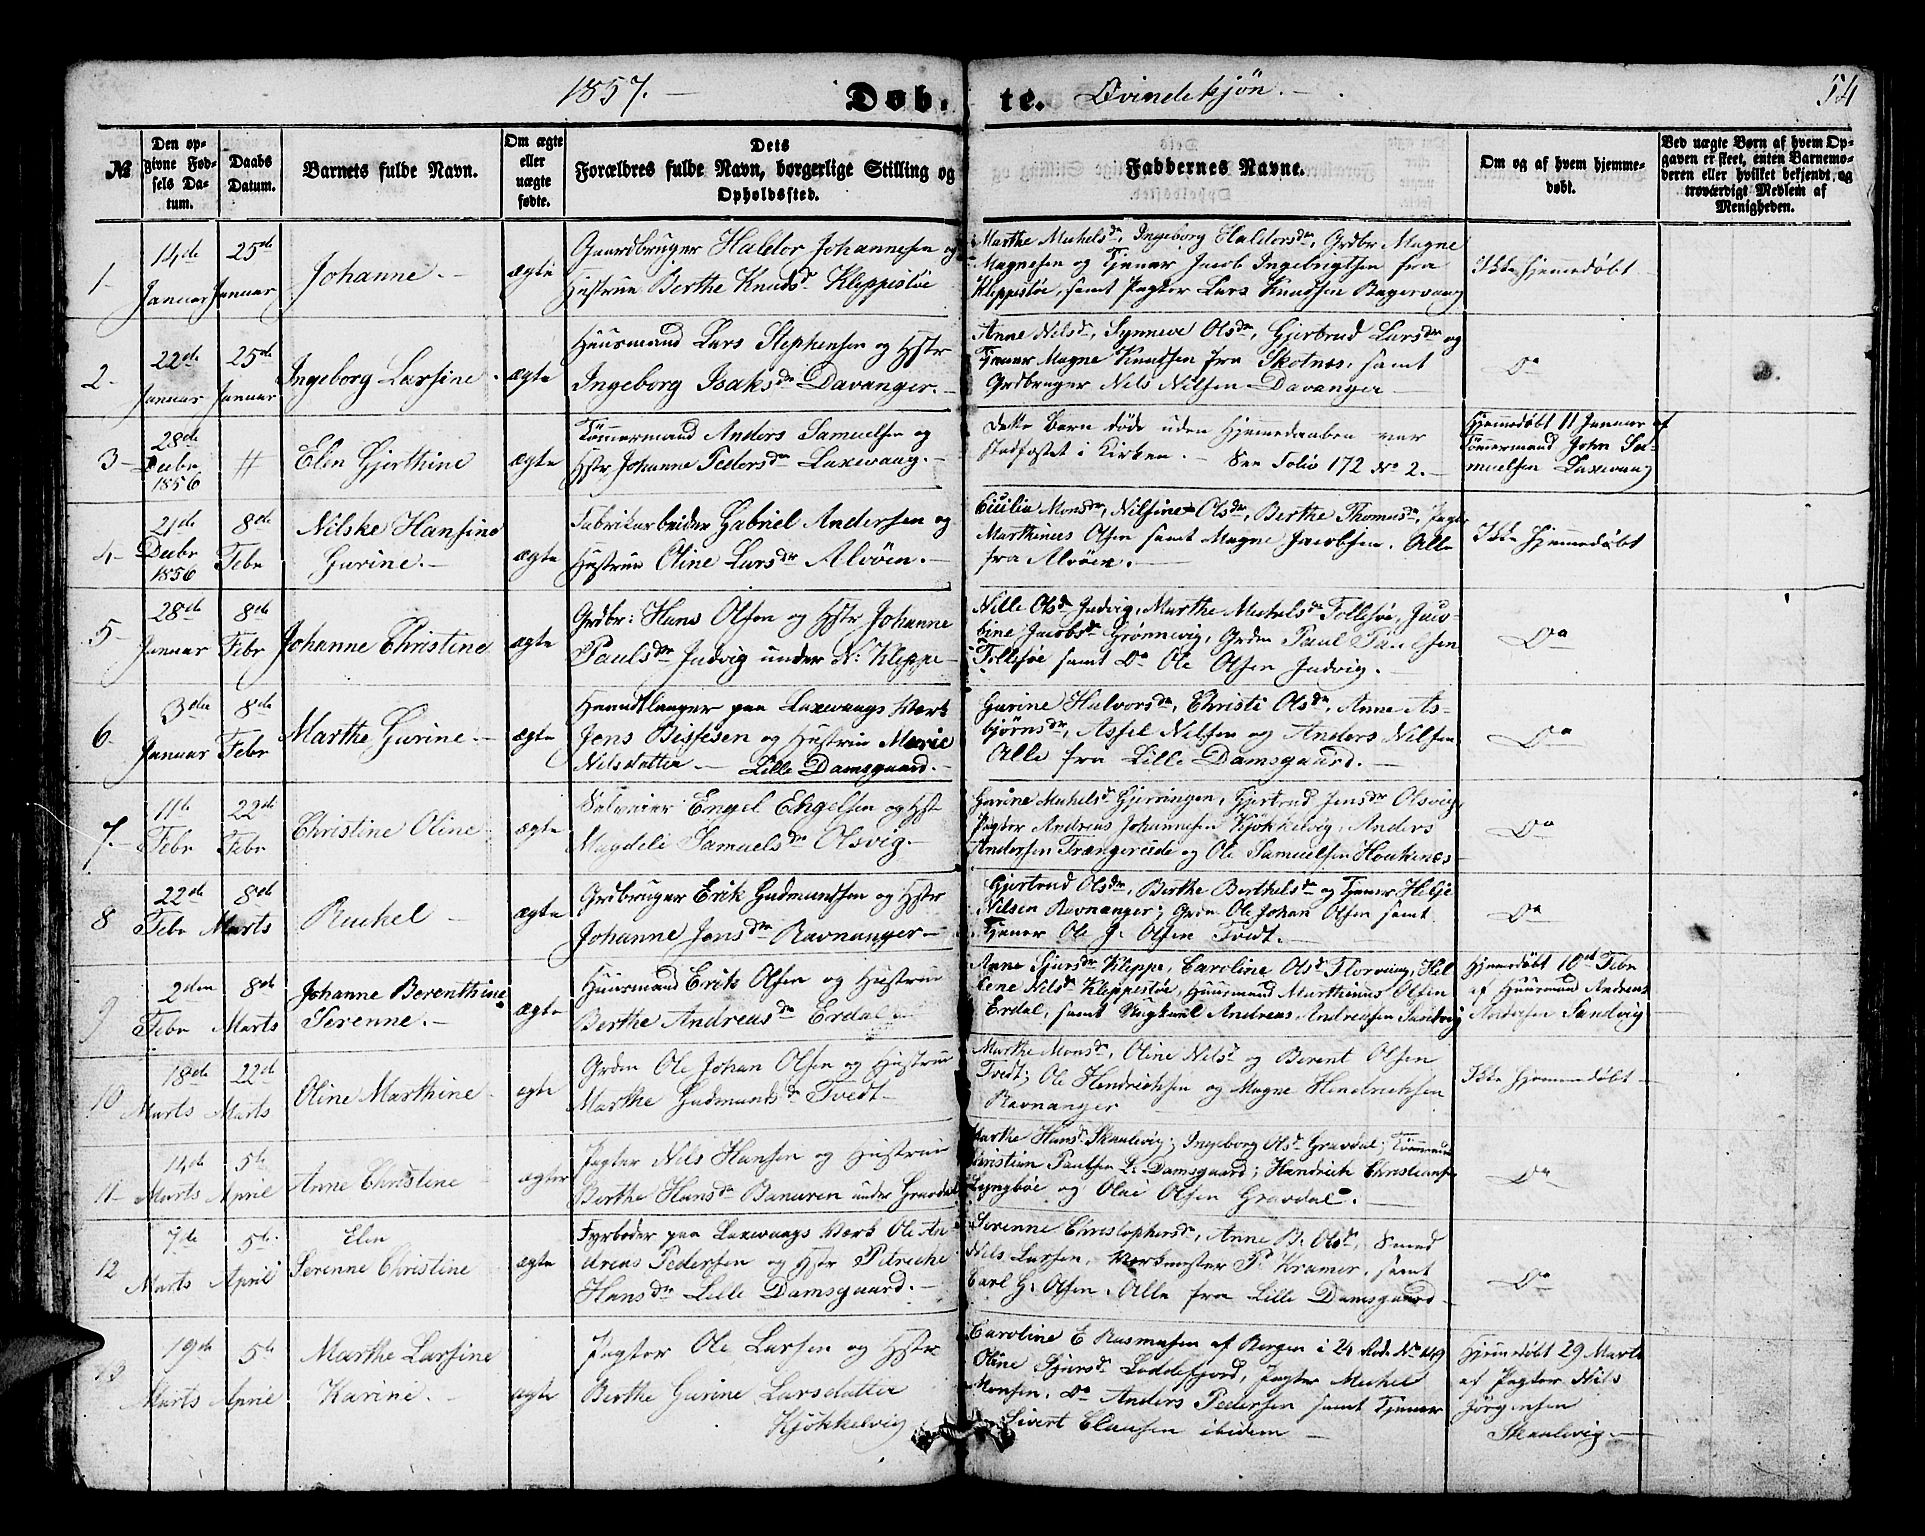 1857. — Døb- te. Qvindekjøn. —
54
№
Den op-
givne Fød-
sels Da-
tum.
Daabs
Datum.
Barnets fulde Navn.
Om ægte
eller
uægte
fødte.
Dets
Forældres fulde Navn, borgerlige Stilling og
Opholdssted.
Faddernes Navne.
Om og af hvem hjemme-
døbt.
Ved uægte Børn af hvem Op-
gaven er skeet, enten Barnemo-
deren eller hvilket bekjendt, og
troværdigt Medlem af
Menigheden.
1-
14de
Januar
25de
Januar
Johanne. —
ægte
Gaardbruger Haldor Johannesen og
Hustrue Berthe Knudsdr Kleppestøe
Marthe Mikelsdr, Ingeborg Haldorsdr, Grdbr Magne
Magnesen og Tjener Jacob Ingebrigtsen fra
Kleppestøe, samt Pagter Lars Knudsen
Ikke hjemmedøbt
2-
22de
Januar
25de
Januar
Ingeborg Larsine.
ægte
Huusmand Lars Stephensen og Hstr
Ingeborg Isaksdr Davanger. —
Anne Nilsdr, Synneve Olsdr, Gjertrud Larsdr og
Tjener Magne Knudsen fra Skotnes, samt
Grdbruger Nils Nilsen Davanger
Do
3-
28de
Decbr
1856
//
Elen Gjerthine
ægte
Tømmermand Anders Samuelsen og
Hstr Johanne Pedersdr Laxevaag. —
Dette Barn døde uden Hjemmedaaben var
stadfæstet i Kirken. — See Folio 172 No 2. —
Hjemmedøbt 11 Januar af
Tømmermand John Sa-
muelsen Laxevaag
4-
21de
Decbr
1856
8de
Febr
Nilske Hansine
Gurine. —
ægte
Fabrikarbeider Gabriel Andersen og
Hustrue Oline Larsdr Alvøen. —
Cicilia Monsdr, Nilsine Olsdr, Berthe Thomasdr, Pagter
Marthinus Olsen samt Magne Jacobsen. Alle
fra Alvøen. —
Ikke Hjemmedøbt
5-
28de
Januar
8de
Febr
Johanne Christine
ægte
Grdbr: Hans Olsen og Hstr Johanne
Paulsdr Judvig under N: Kleppe —
Nille Olsdr Judvig, Marthe Mikelsdr Follesøe, Jaco-
bine Jacobsdr Grønnevig, Grdm Paul Paulsen
Follesøe samt Do Ole Olsen Judvig. —
Do
6-
3die
Januar
8de
Febr
Marthe Gurine. —
ægte
Haandlanger paa Laxevaags Værk
Jens Bessesen og Hustrue Marie
Nilsdatter — Lille Damsgaard. —
Gurine Halvorsdr, Christi Olsdr, Anne As-
bjørnsdr, Aslel Nilsen og Anders Nilsen
Alle fra Lille Damsgaard. —
Do
7-
11te
Febr
22de
Febr
Christine Oline
ægte
Selveier Engel Engelsen og Hstr
Magdeli Samuelsdr Olsvig. —
Gurine Mikelsdr Gjerringen, Gjertrud Jensdr Olsvig,
Pagter Andreas Johannesen Kjøkkelvig, Anders
Andersen Frangereide og Ole Samuelsen Haakenæs —
Do
8
22de
Febr
8de
Marts
Rachel —
ægte
Grdbruger Erik Gudmundsen og Hstr
Johanne Jensdr Ravnanger —
Gjertrud Olsdr, Berthe Berthelsdr og Tjener Helje
Nilsen Ravnanger; Grdm Ole Johan Olsen samt
Tjener Ole J. Olsen Tvedt. —
Do
9
2den
Febr
8de
Marts
Johanne Berenthine
Serenne. —
ægte
Huusmand Erik Olsen og Hustrue
Berthe Andreasdr Erdal —
Anne Sjursdr Kleppe, Caroline Olsdr Florvaag, Hel-
lene Nilsdr Kleppestøe, Huusmand Marthinus Olsen
Erdal, samt Ungkarl Andreas Andreasen Sandvig
Hjemmedøbt 10de Febr
af Huusmand Andreas
Andersen Sandvig
10
18de
Marts
22de
Marts
Oline Marthine —
ægte
Grdm Ole Johan Olsen og Hustrue
Marthe Gudmundsdr Tvedt —
Marthe Monsdr, Oline Nilsdr og Berent Olsen
Tvedt; Ole Hendricksen og Magne Hendricksen
Ravnanger
Ikke Hjemmedøbt —
11-
14de
Marts
5te
April
Anne Christine —
ægte
Pagter Nils Hansen og Hustrue
Berthe Hansdr Banuren under Gravdal
Marthe Hansdr Skaalevig; Ingeborg Olsdr Gravdal; Tømmermd
Christian Paulsen L. Damsgaard; Hendrich Christiansen
Lyngbøe og Olai Olsen Gravdal. —
Do
12
7de
Marts
5te
April
Elen
Serenne Christine
ægte
Fyrbøder paa Laxevaags Værk Ole An-
dreas Pedersen og Hstr Petreche
Hansdr Lille Damsgaard. —
Serenne Christophersdr, Anne B. Olsdr, Smed
Nils Larsen, Værkmester P. Kramer, samt
Carl G. Olsen. Alle fra Lille Damsgaard —
Do
13
19de
Marts
5te
April
Marthe Larsine
Karine. —
ægte
Pagter Ole Larsen og Hstr
Berthe Gurine Larsdatter
Kjøkkelvig
Caroline E Rasmusen af Bergen i 24 Rode No 149
Oline Sjursdr Loddefjord, Pagter Mickel
Monsen, Do Anders Pedersen samt Tjener
Sivert Clausen ibidem —
Hjemmedøbt 29 Marts
af Pagter Nils
Jørgensen
Skaalevig. —